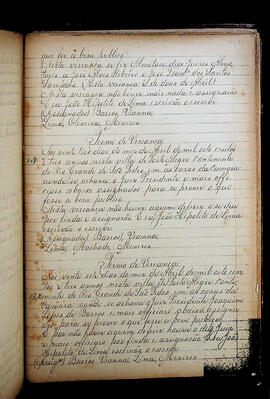 que for a bem publico.
Nesta vereança se fez Almotace dos Juizes Alma
José Alves Ribeiro e José dos Santos
Sampaio (Esta vereança é de deus de Abril)
Nesta vereança não houve mais nada e assignarão
E eu João Hipolito de Lima escrivão o escrevi.
(Assignados) Barros, Vianna,
Lima, Oliveira, Menezes.
Termo de Vereança
Aos vente e tres dias do mez de Abril de mil oito centos
e tres annos nesta villa de Porto Alegre Continente
do Rio Grande de São Pedro, em as cazas da Camara
aonde se achava o Juiz Presidente e mais offi
ciais abaixo assignados para se prover o que
fosse a bem publico.
Nesta vereança não houve aquem deferir e deu
por finda e assignarão. E eu João Hipolito de Lima
escrivão o escrevi.
(Assignados) Barros, Vianna,
Lima, Machado, Menezes.
Termo de Vereança
Aos vente sete dias do mez de Abril de mil oito cen
tos e tres annos nesta villa de Porto Alegre Conti
nente do Rio Grande de São Pedro, em as cazas da
Camara aonde se achava o Juiz Presidente Joaquim
Lopes de Barros e mais officiaes abaixo assigna
dos para se prover o que fosse a bem publico.
E por não haver aquem deferir houve o dito Juiz
e mais officiaes por finda e assignarão E eu João
Hipolito de Lima escrivão o escrevi
(Assigos) Barros, Vianna, Lima, Menezes.